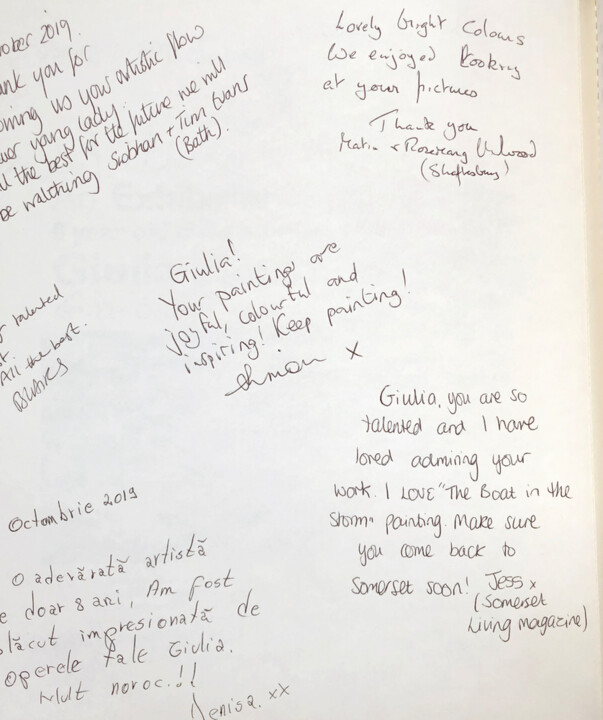 ober 2019.
ank you for
us your artistic flow
young lady.
the best for the future we will
be watching Siobhan + Tim Evans
(Bath).
Lovely bright Colours
We enjoyed looking
at your pictures
Thank you
& Rosemary
(Shaftesbury)
Giulia!
Your paintings are
joyful, colourful and
inspiring! Keep painting!
x
talented
All the best.
Giulia, you are so
talented and I have
loved admiring your
work. I LOVE "The Boat in the
Storm" painting. Make sure
you come back to
Somerset soon! Jess x
(Somerset
Living magazine)
Octombrie 2019
O adevărată artistă
e doar 8 ani, Am fost
plăcut impresionată de
operele tale Giulia.
Mult noroc.!!
Denisa. xx